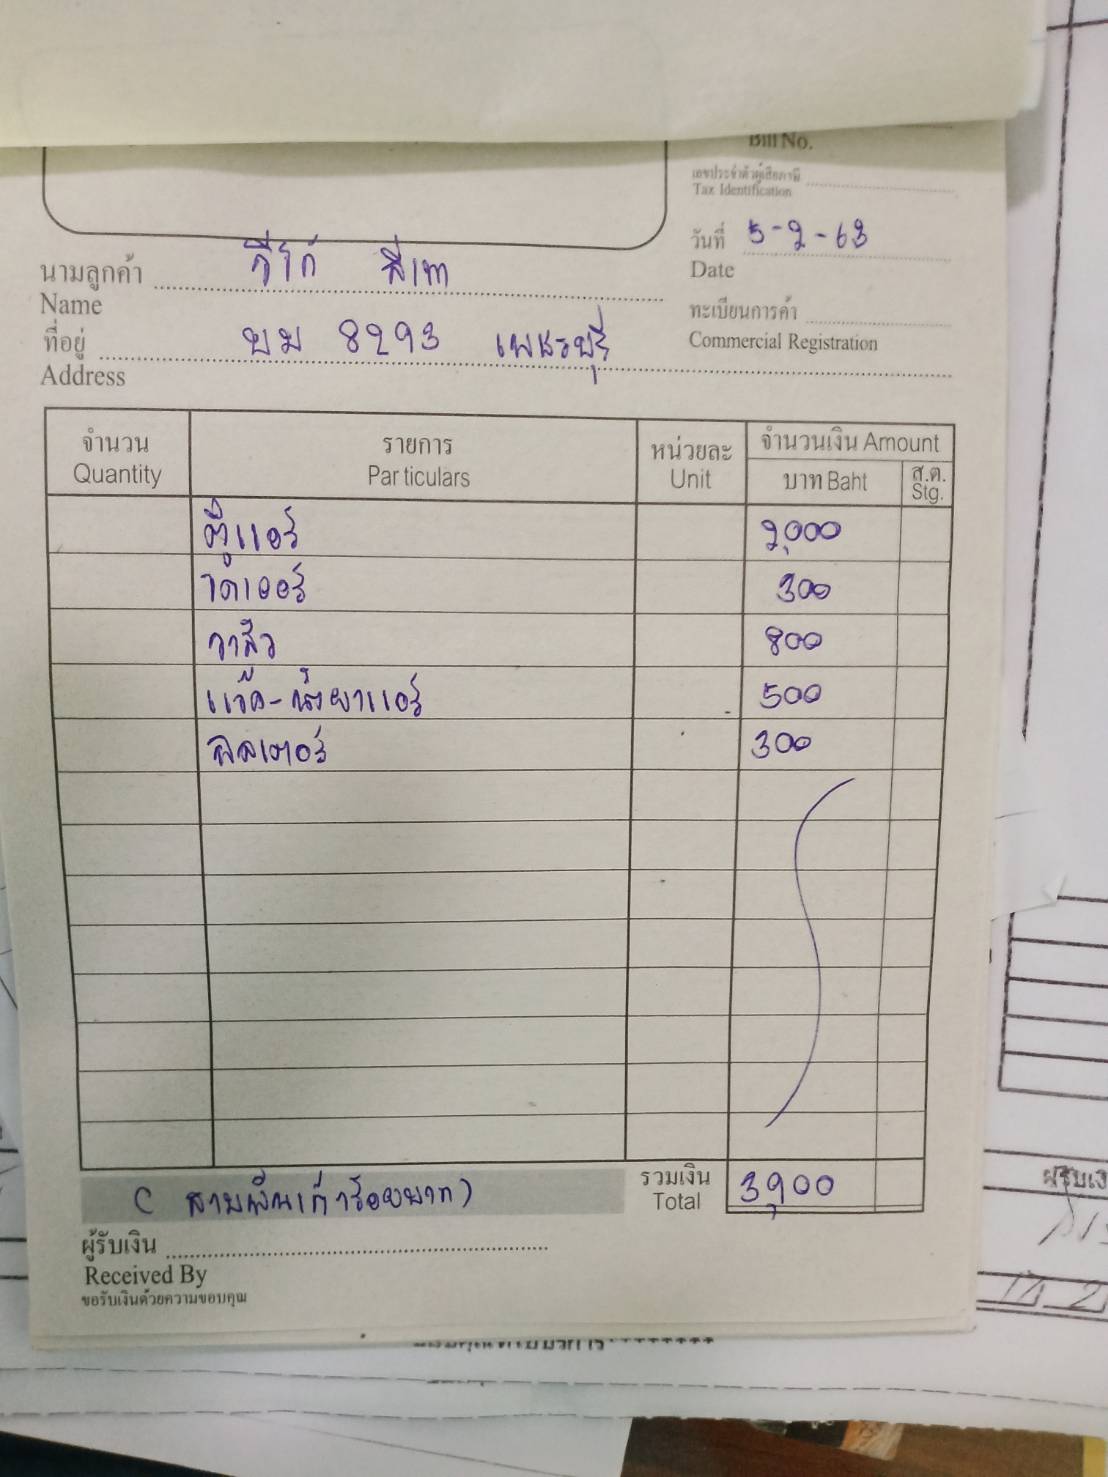 Bill No.
เลขประจำตัวผู้เสียภาษี
Tax Identification
วันที่ 5-2-63
Date
นามลูกค้า วีโก้ สีเทา
Name
ทะเบียนการค้า
Commercial Registration
ที่อยู่ บม 8293 เพชรบุรี
Address
จำนวน รายการ หน่วยละ จำนวนเงิน Amount
Quantity Particulars Unit บาท Baht ส.ต. Stg.
ตู้แอร์ 2,000
ไดเออร์ 300
วาล์ว 800
แว๊ค-น้ำยาแอร์ 500
ฟิลเตอร์ 300
(สามพันเก้าร้อยบาท) รวมเงิน 3,900
Total
ผู้รับเงิน
Received By
ขอรับเงินด้วยความขอบคุณ